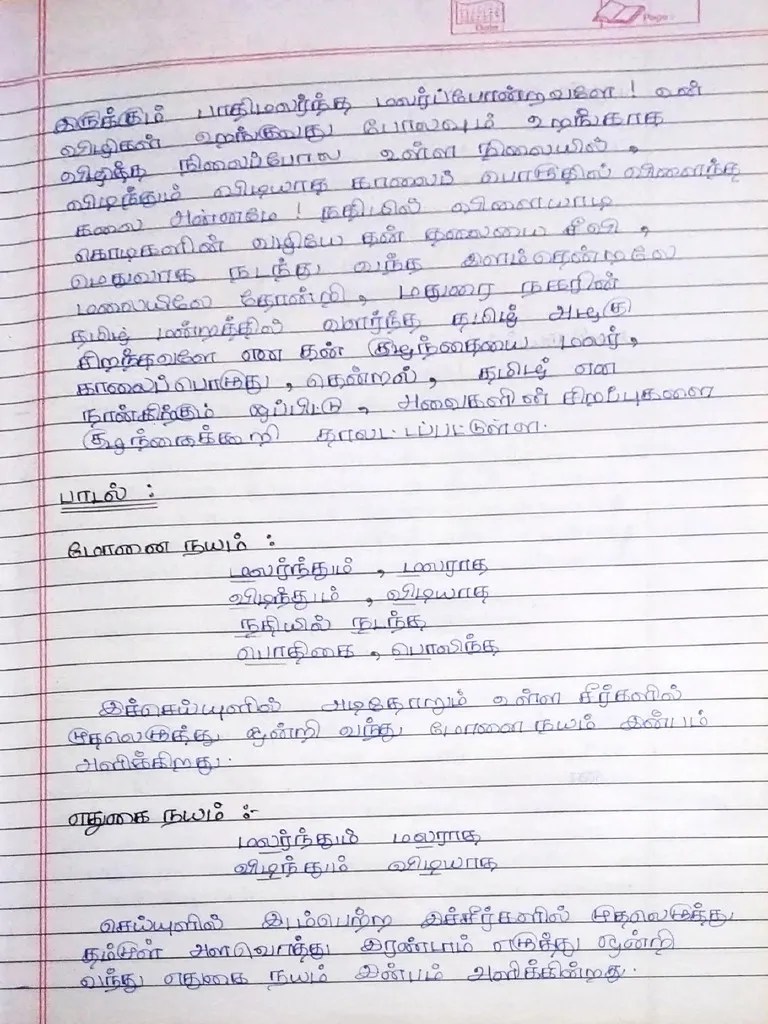 Date
Page:
இருக்கும் பாதிமலர்ந்த மலர்ப்போன்றவளே! உன்
விழிகள் உறங்குவது போலவும் உறங்காத
விழித்த நிலைப்போல உள்ள நிலையில்,
விடிந்தும் விடியாத காலைப் பொழுதில் விளைந்த
கலை அன்னமே! நதியில் விளையாடி
கொடிகளின் வழியே தன் தலையை சீவி,
மெதுவாக நடந்து வந்த இளம்தென்றலே
மலையிலே தோன்றி, மதுரை நகரின்
தமிழ் மன்றத்தில் வளர்ந்த தமிழ் அழகு
சிறந்தவளே என தன் குழந்தையை மலர்,
காலைப்பொழுது, தென்றல், தமிழ் என
நான்கிற்கும் ஒப்பிட்டு, அவைகளின் சிறப்புகளை
குழந்தைக்கூறி தாலட்டப்பட்டுள்ள.
பாடல் :
மோனை நயம் :
மலர்ந்தும் , மலராத
விடிந்தும் , விடியாத
நதியில் நடந்த
பொதிகை , பொலிந்த
இச்செய்யுளில் அடிதோறும் உள்ள சீர்களில்
முதலெழுத்து ஒன்றி வந்து மோனை நயம் இன்பம்
அளிக்கிறது.
எதுகை நயம் :-
மலர்ந்தும் மலராத
விடிந்தும் விடியாத
செய்யுளில் இடம்பெற்ற இச்சீர்களில் முதலெழுத்து
தம்முள் அளவொத்து இரண்டாம் எழுத்து ஒன்றி
வந்து எதுகை நயம் இன்பம் அளிக்கின்றது.